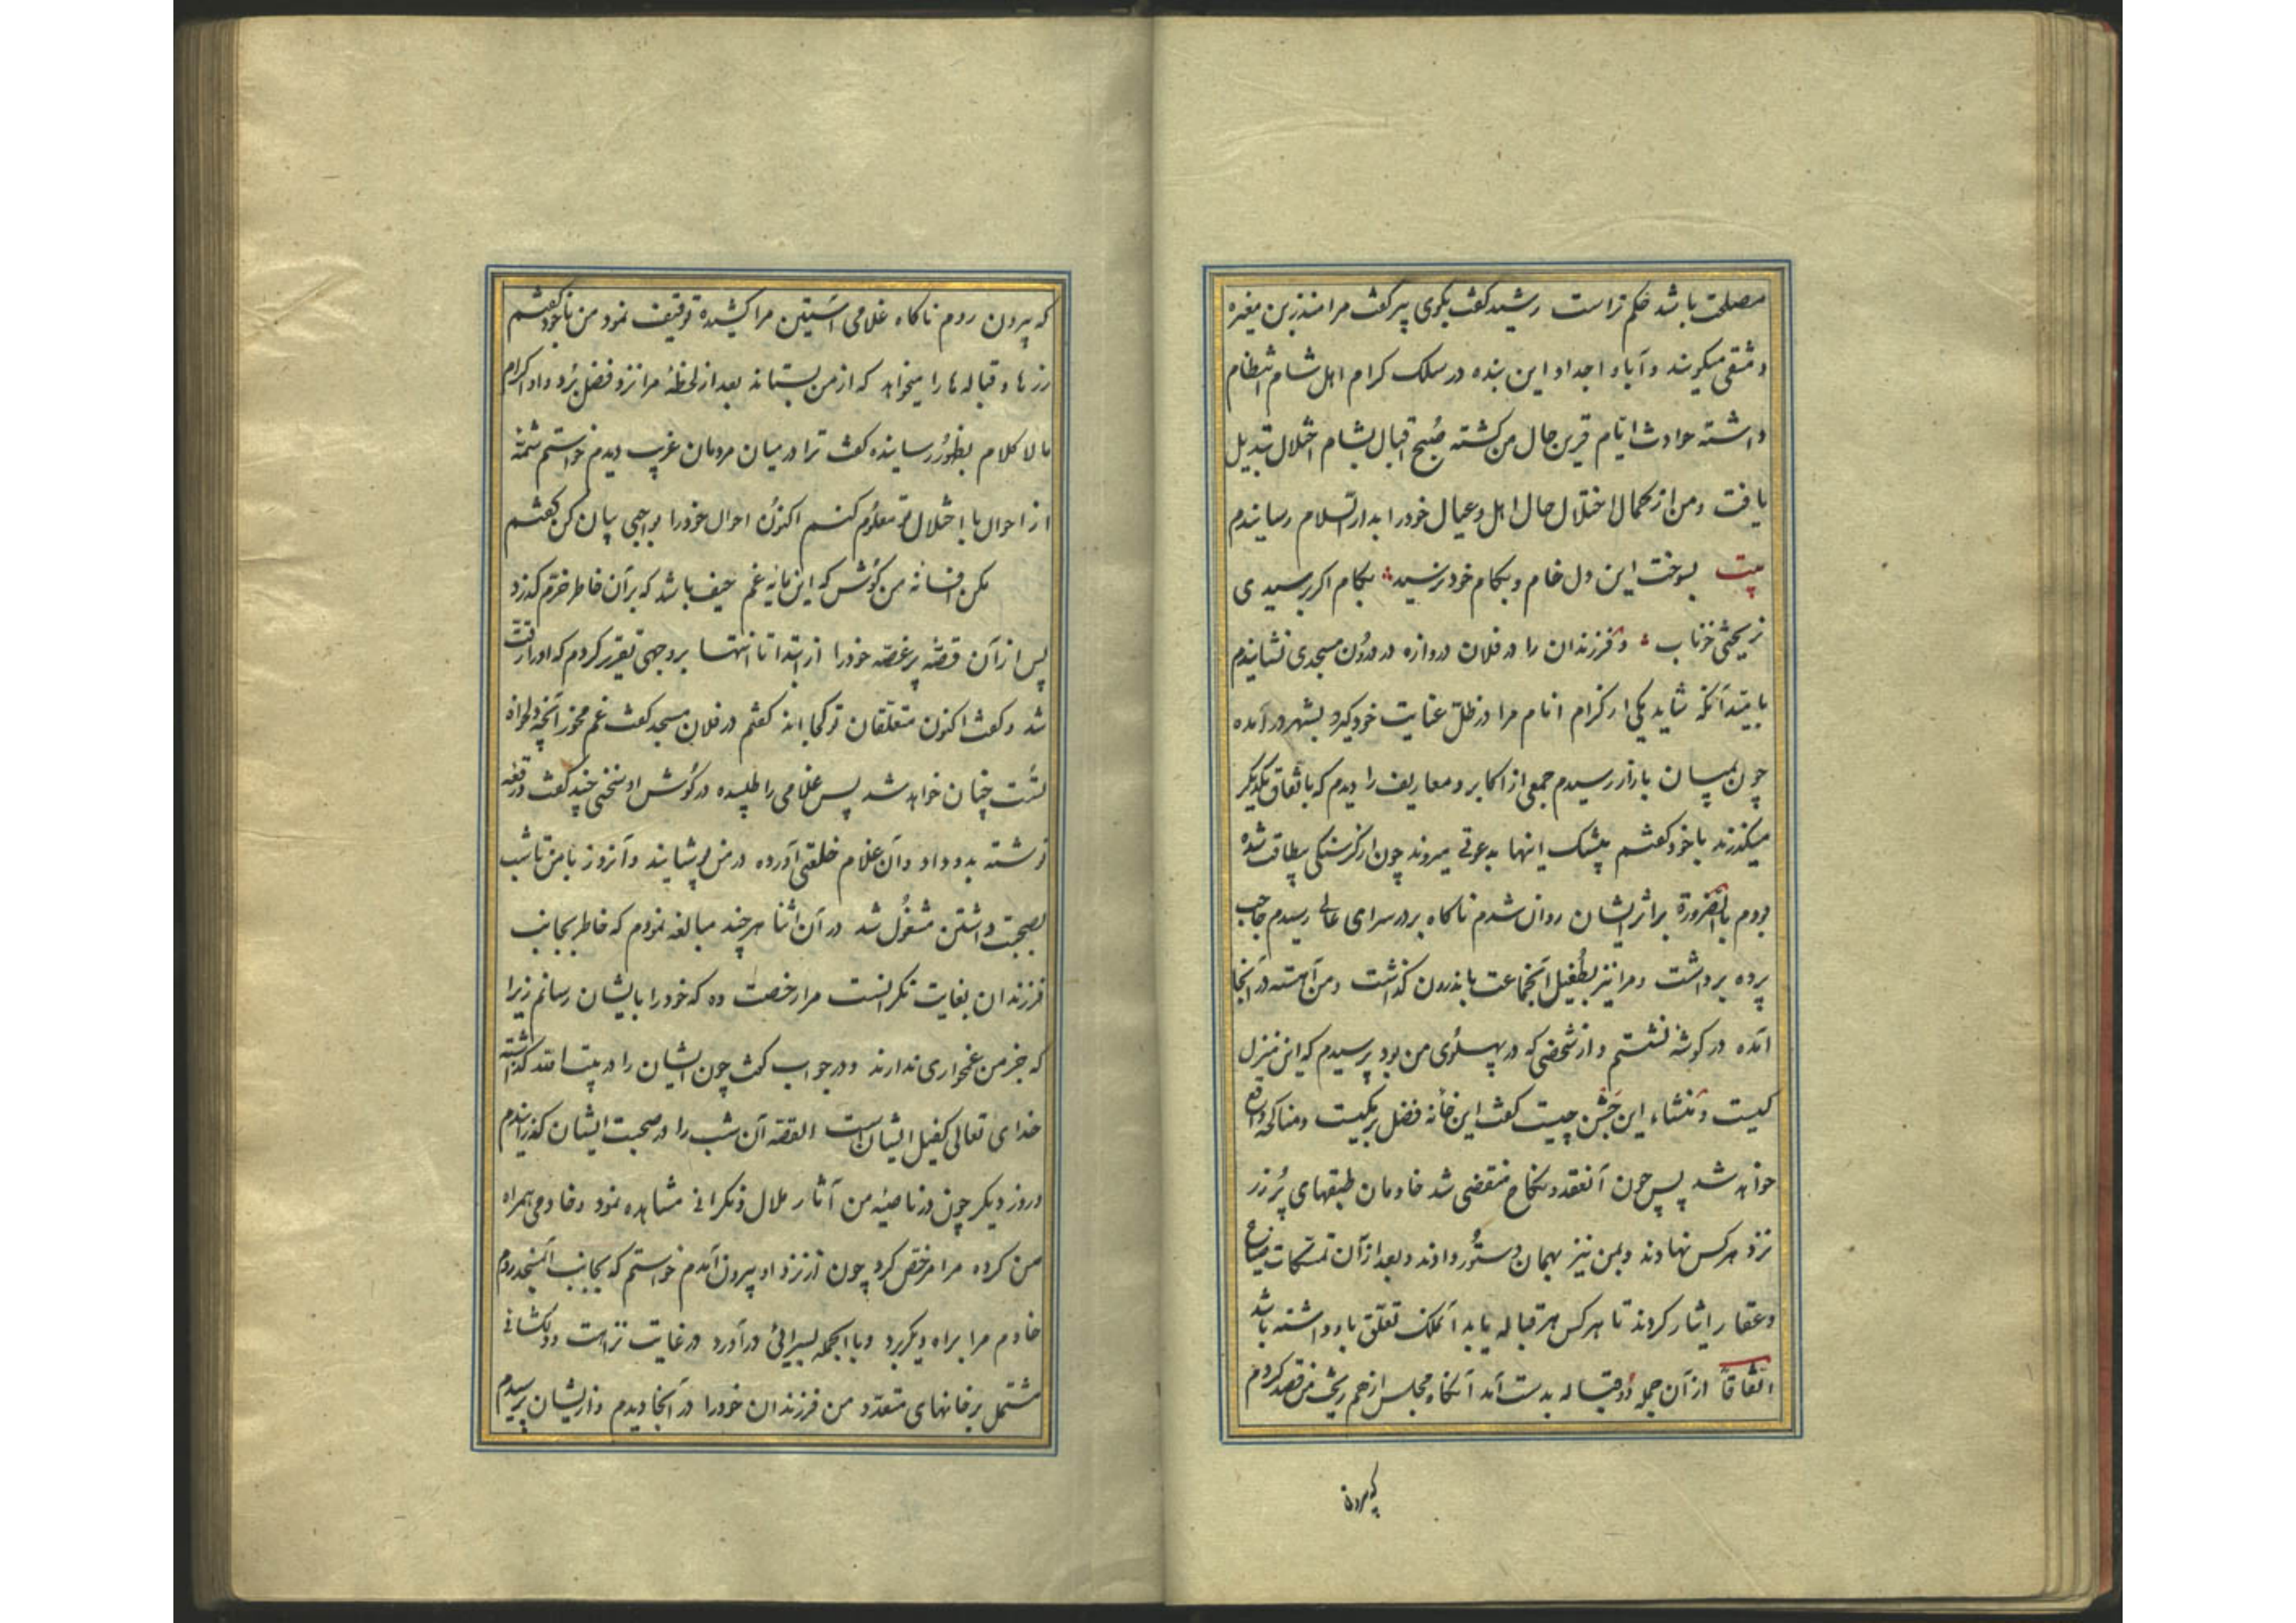 مصلحت باشد حکم تراست رشید گفت بگوی پیر گفت مرا منذر بن مغیره
دمشقی میگویند و آبا و اجداد این بنده در سلک کرام اهل شام انتظام
داشته حوادث ایام قرین حال من گشته صبح اقبال بشام اختلال تبدیل
یافت و من از کمال اختلال حال اهل و عیال خود را بدار السلام رسانیدم
بیت بسوخت این دل خام و بکام خود نرسید بکام اگر برسیدی
نریختی خوناب و فرزندان را در فلان دروازه در درون مسجدی نشاندیم
بامید آنکه شاید یکی از کرام انام مرا در ظل عنایت خود گیرد بشهر در آمده
چون بمیان بازار رسیدم جمعی از اکابر و معاریف را دیدم که باتفاق یکدیگر
میگذرند با خود گفتم بیشک اینها بدعوتی میروند چون از گرسنگی بیطاقت شده
بودم بالضروره بر اثر ایشان روان شدم ناگاه بر در سرای عالی رسیدم حاجب
پرده برداشت و مرا نیز بطفیل آنجماعت باندرون گذاشت و من آهسته در آنجا
آمده در گوشه نشستم و از شخصی که در پهلوی من بود پرسیدم که این منزل
کیست و منشاء این جشن چیست گفت این خانه فضل برمکیست و مناکحه واقع
خواهد شد پس چون آنعقد و نکاح منقضی شد خادمان طبقهای پر زر
نزد هر کس نهادند و بمن نیز بهمان دستور دادند و بعد از آن تمسکات ضیاع
و عقار ایثار کردند تا هر کس هر قباله یابد آنملک تعلق باو داشته باشد
اتفاقا از آن جمله دو قباله بدست آمد آنگاه مجلس از هم ریخت من قصد کردم
که بیرون
که بیرون روم ناگاه غلامی آستین مرا کشیده توقیف نمود من با خود گفتم
زرها و قباله ها را میخواهد که از من بستاند بعد از لحظه مرا نزد فضل برد و او اکرام
ما لا کلام بظهور رسانیده گفت ترا در میان مردمان غریب دیدم خواستم شمه
از احوال با اختلال تو معلوم کنم اکنون احوال خود را بواجبی بیان کن گفتم
مکن افسانه من گوش که این مایه غم حیف باشد که بر آن خاطر خرم گذرد
پس از آن قصه پر غصه خود را از ابتدا تا انتها بر وجهی تقریر کردم که او را رقت
شد و گفت اکنون متعلقان تو کجا اند گفتم در فلان مسجد گفت غم مخور آنچه دلخواه
تست چنان خواهد شد پس غلامی را طلبیده در گوش او سخنی چند گفت و رقعه
نوشته بدو داد و آن غلام خلعتی آورده در من پوشانید و آنروز با من تا شب
بصحبت داشتن مشغول شد در آن اثنا هر چند مبالغه نمودم که خاطر بجانب
فرزندان بغایت نگرانست مرا رخصت ده که خود را بایشان رسانم زیرا
که جز من غمخواری ندارند و در جواب گفت چون ایشان را در بیت الله گذاشته
خدای تعالی کفیل ایشان است القصه آن شب را در صحبت ایشان گذرانیدم
و روز دیگر چون در ناصیه من آثار ملال و نگرانی مشاهده نمود و خادمی همراه
من کرده مرا مرخص کرد چون از نزد او بیرون آمدم خواستم که بجانب آنمسجد روم
خادم مرا براه دیگر برد و بالجمله بسرائی در آورد در غایت نزاهت و دلکشائی
مشتمل بر خانهای متعدد من فرزندان خود را در آنجا دیدم و از ایشان پرسیدم